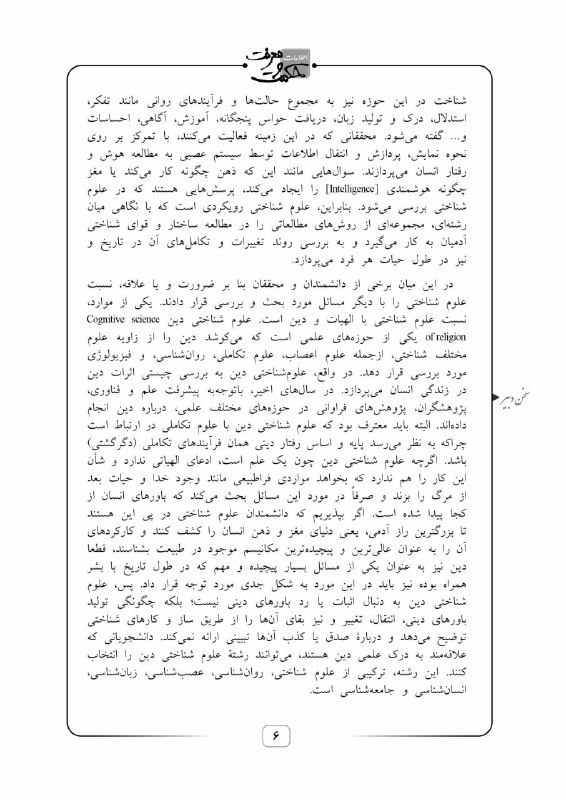 اطلاعات
حکمت و معرفت
شناخت در این حوزه نیز به مجموع حالت‌ها و فرآیندهای روانی مانند تفکر،
استدلال، درک و تولید زبان، دریافت حواس پنجگانه، آموزش، آگاهی، احساسات
و... گفته می‌شود. محققانی که در این زمینه فعالیت می‌کنند، با تمرکز بر روی
نحوه نمایش، پردازش و انتقال اطلاعات توسط سیستم عصبی به مطالعه هوش و
رفتار انسان می‌پردازند. سوال‌هایی مانند این که ذهن چگونه کار می‌کند یا مغز
چگونه هوشمندی [Intelligence] را ایجاد می‌کند، پرسش‌هایی هستند که در علوم
شناختی بررسی می‌شود. بنابراین، علوم شناختی رویکردی است که با نگاهی میان
رشته‌ای، مجموعه‌ای از روش‌های مطالعاتی را در مطالعه ساختار و قوای شناختی
آدمیان به کار می‌گیرد و به بررسی روند تغییرات و تکامل‌های آن در تاریخ و
نیز در طول حیات هر فرد می‌پردازد.
در این میان برخی از دانشمندان و محققان بنا بر ضرورت و یا علاقه، نسبت
علوم شناختی را با دیگر مسائل مورد بحث و بررسی قرار دادند. یکی از موارد،
نسبت علوم شناختی با الهیات و دین است. علوم شناختی دین Cognitive science
of religion یکی از حوزه‌های علمی است که می‌کوشد دین را از زاویه علوم
مختلف شناختی، ازجمله علوم اعصاب، علوم تکاملی، روان‌شناسی، و فیزیولوژی
مورد بررسی قرار دهد. در واقع، علوم‌شناختی دین به بررسی چیستی اثرات دین
در زندگی انسان می‌پردازد. در سال‌های اخیر، باتوجه‌به پیشرفت علم و فناوری،
پژوهشگران، پژوهش‌های فراوانی در حوزه‌های مختلف علمی، درباره دین انجام
داده‌اند. البته باید معترف بود که علوم شناختی دین با علوم تکاملی در ارتباط است
چراکه به نظر می‌رسد پایه و اساس رفتار دینی همان فرآیندهای تکاملی (دگرگشتی)
باشد. اگرچه علوم شناختی دین چون یک علم است، ادعای الهیاتی ندارد و شأن
این کار را هم ندارد که بخواهد مواردی فراطبیعی مانند وجود خدا و حیات بعد
از مرگ را بزند و صرفاً در مورد این مسائل بحث می‌کند که باورهای انسان از
کجا پیدا شده است. اگر بپذیریم که دانشمندان علوم شناختی در پی این هستند
تا بزرگترین راز آدمی، یعنی دنیای مغز و ذهن انسان را کشف کنند و کارکردهای
آن را به عنوان عالی‌ترین و پیچیده‌ترین مکانیسم موجود در طبیعت بشناسند، قطعا
دین نیز به عنوان یکی از مسائل بسیار پیچیده و مهم که در طول تاریخ با بشر
همراه بوده نیز باید در این مورد به شکل جدی مورد توجه قرار داد. پس، علوم
شناختی دین به دنبال اثبات یا رد باورهای دینی نیست؛ بلکه چگونگی تولید
باورهای دینی، انتقال، تغییر و نیز بقای آن‌ها را از طریق ساز و کارهای شناختی
توضیح می‌دهد و دربارهٔ صدق یا کذب آن‌ها تبیینی ارائه نمی‌کند. دانشجویانی که
علاقه‌مند به درک علمی دین هستند، می‌توانند رشتهٔ علوم شناختی دین را انتخاب
کنند. این رشته، ترکیبی از علوم شناختی، روان‌شناسی، عصب‌شناسی، زبان‌شناسی،
انسان‌شناسی و جامعه‌شناسی است.
سخن دبیر
۶